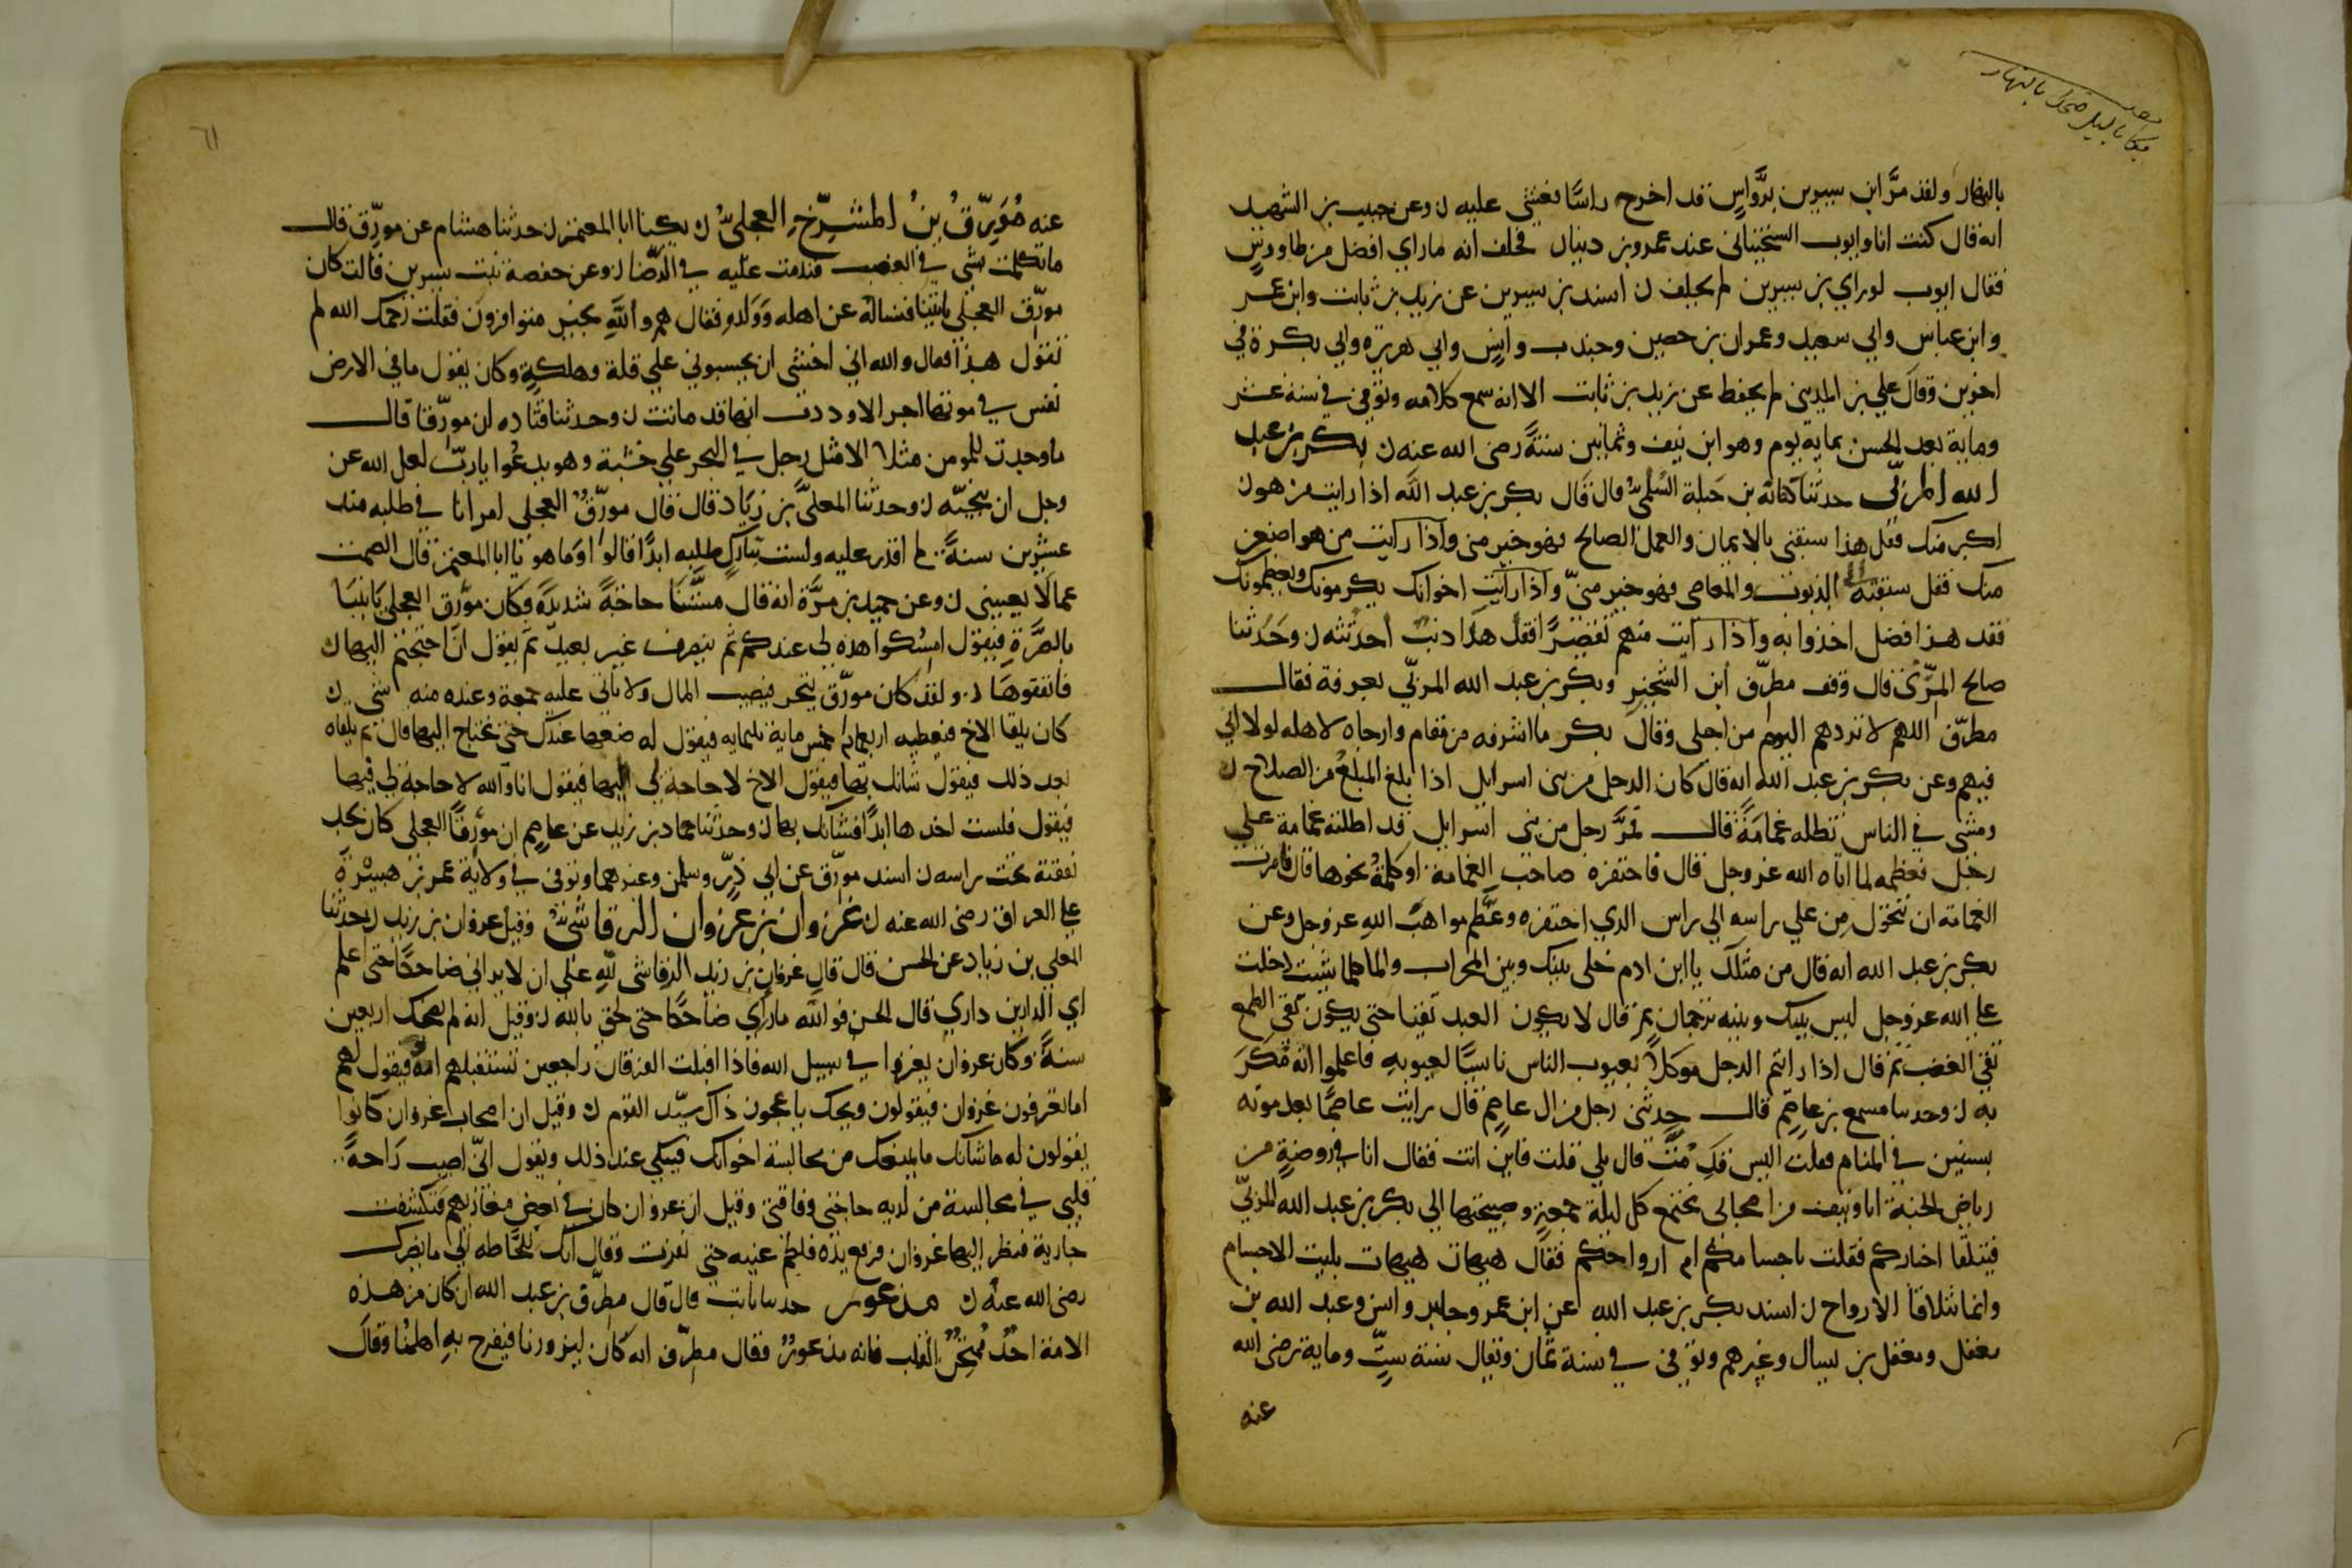 بكا بالليل ضحك بالنهار
بالنهار ولقد مرّ ابن سيرين برَّواسٍ قد اخرج راسًا فغشي عليه ن وعن حبيب بن الشهيد
انه قال كنت انا وايوب السختياني عند عمرو بن دينار فحلف انه ماراي افضل من طاووسٍ
فقال ايوب لوراي بن سيرين لم يحلف ن اسند بن سيرين عن زيد بن ثابت وابن عمر
وابن عباس وابي سعيد وعمران بن حصين وجندب وانسٍ وابي هريرة وابي بكرة في
اخرين وقال علي بن المديني لم يحفظ عن زيد بن ثابت الا انه سمع كلامه وتوفي في سنة عشر
وماية بعد الحسن بماية يوم وهو ابن نيف وثمانين سنةً رضي الله عنه ن بكر بن عبد
الله المزنّي حدثنا كنانة بن جبلة السُلميّ قال قال بكر بن عبد الله اذا رايت من هو
اكبر منك فقل هذا سبقني بالايمان والعمل الصالح فهو خير مني واذا رايت من هو اصغر
منك فقل سبقته الي الذنوب والمعاصي فهو خير منّي واذا رايت اخوانك يكرمونك ويعظمونك
فقل هذا فضل اخذوا به واذا رايت منهم تقصيرًا فقل هذا ذنب احدثته ن وحَدثنا
صالح المرّي قال وقف مطرّف ابن الشخير وبكر بن عبد الله المزنّي بعرفة فقال
مطرّف اللهم لا تردهم اليوم من اجلي وقال بكر ما اشرفه من مقام وارجاه لاهله لولا اني
فيهم وعن بكر بن عبد الله انه قال كان الرجل من بني اسرايل اذا بلغ المبلغ من الصلاح
ومشي في الناس تظله غمامَةً قال فمرَّ رجل من بني اسرايل قد اظلته غمامة علي
رجل فعظمه لما اتاه الله عز وجل قال فاحتقره صاحب الغمامة اوكلمة نحوها قال فامرت
الغمامة ان تتحول مِن علي راسه الي راس الذي احتقره وعظّم مواهب اللهِ عز وجل وعن
بكر بن عبد الله انه قال من مثلك يا ابن ادم خلي بينك وبين المحراب والما كلما شيت دخلت
علي الله عز وجل ليس بينك وبينه ترجمان ثم قال لا يكون العبد تقيا حتي يكون تقي الطمع
تقي الغضب ثم قال اذا رايتم الرجل موكلاً بعيوب الناس ناسيًا لعيوبهِ فاعلموا انه قد مُكِرَ
به ن وحدثنا مسمع بن عاصم قال حدثني رجل من ال عاصم قال رايت عاصمًا بعد موته
بسنتين في المنام فقلت اليس قد متَّ قال بلي قلت فاين انت فقال انا في روضةٍ من
رياض الجنة انا ونفر من اصحابي نجتمع كل ليلة جمعةٍ وصبيحتها الي بكر بن عبد الله المزنيّ
فنتلقا اخباركم فقلت باجسامكم ام ارواحكم فقال هيهات هيهات بليت الاجسام
وانما تتلاقا الارواح ن اسند بكر بن عبد الله عن ابن عمر وجابر وانس وعبد الله بن
مغفل ومعقل بن يسار وغيرهم وتوفي في سنة ثمان ويقال سنة ستٍّ وماية رضي الله
عنه
٦١
عنه مُوَرّقُ بنُ المشمرِّخِ العجليُّ ن يكنا ابا المعتمر ن حدثنا هشام عن مورّق قال
ماتكلمت بشي في الغضب فندمت عليه في الرّضا ن وعن حفصة بنت سيرين قالت كان
مورّق العجلي ياتينا فنسالهُ عن اهله وَوَلدهِ فقال هم واللهِ بخير متوافرون فقلت رَحمك الله لم
تقول هذا فقال والله اني اخشي ان يحبسوني علي قلة وهلكةٍ وكان يقول مافي الارض
نفس في موتها اجر الا وددت انها قد ماتت ن وحدثنا قتاده ان مورّقا قال
ماوجدت للمومن مثلا الا مثل رجل في البحر علي خشبة وهو يدعُوا ياربّ لعل الله عن
وجل ان ينجيّه ن وحدثنا المعليّ بن زياد قال قال مورّقُ العجلي امرانا في طلبه منذ
عشرين سنةً لم اقدر عليه ولست بتاركٍ طلبه ابدًا قالوا وما هو يا ابا المعتمر قال الصمت
عما لا يعنيني ن وعن جميل بن مرَّة انه قال مسَّتنا حاجَةً شديدةً وكان مورّق العجلي يَاتينَا
بالصُّرَّةِ فيقول امسُكوا هذه لي عندكم ثم ينصرف غير بعيدٍ ثم يقول ان احتجتم اليها
فانفقوهَا ن ولقد كان مورّق يتجر فيصيب المال ولا ياتي عليه جمعة وعنده منه شي ن
كان يلقا الاخ فيعطيه اربعمايه خمس ماية ثلثمايه فيقول له ضعها عندك حتي نحتاج اليها قال ثم يلقاه
بعد ذلك فيقول شانك بها فيقول الاخ لا حاجة لي اليها فيقول انا والله لا حاجة لي فيها
فيقول فلست اخذها ابدًا فشانك بها ن وحدثنا حماد بن زيد عن عاصم ان مورقًا العجلي كان يجد
نفقته تحت راسه ن اسند مورّق عن ابي ذرّ وسلمن وغيرهما وتوفي في ولاية عمر بن هبيْرة
علي العراق رضي الله عنه ن غزوان بن غزوان الرقاشيُّ وقيل غزوان بن زيد ن حدثنا
المعلي بن زياد عن الحسن قال قال غزوان بن زيد الرقاشي للهِ علي ان لا يراني ضاحكًا حتي اعلم
اي الدارين داري قال الحسن فوالله ماراي ضاحكًا حتي لحق بالله ن وقيل انه لم يضحك اربعين
سنةً وكان غزوان يغزوا في سبيل الله فاذا اقبلت الفرقان راجعين تستقبلهم امهُ فيقول لهم
اما تعرفون غزوان فيقولون ويحك يا عجوز ذاك سيّد القوم ن وقيل ان اصحاب غزوان كانوا
يقولون له ما شانك مايمنعك من مجالسة اخوانك فيبكي عند ذلك ويقول انّي اصيب رَاحةَ
قلبي في مجالسة من لديه حاجتي وفاقتي وقيل ان غزوان كان في بعض مغازيهم فتكشفت
جارية فنظر اليها غزوان فرفع يدَه فلطم عينه حتي نفرت وقال انك للحَّاظه الي مايضرك
رضي الله عنه ن مذعور حدثنا ثابت قال قال مطرّف بن عبد الله ان كان من هذه
الامة احدٌ مُمتحَنُ القلب فانه مذعورٌ فقال مطرّف انه كان ليزورنا فيفرح بهِ اهلنُا وقال